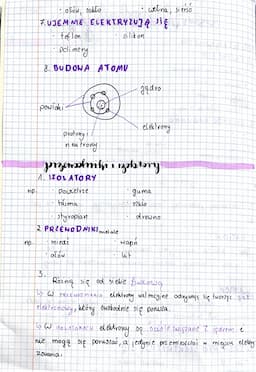 · ołów, szkło · wełna, sierść
7. UJEMNIE ELEKTRYZUJĄ SIĘ
· teflon · silikon
· polimery
8. BUDOWA ATOMU
jądro
powłoki
elektrony
protony i
neutrony
przewodniki i izolatory
1. IZOLATORY
np. · powietrze · guma
· tkanina · szkło
· styropian · drewno
2. PRZEWODNIKI
np. · miedź · wapń
· ołów · lit
3.
Różnią się od siebie budową
↳ W przewodnikach elektrony walencyjne odrywają się tworząc gaz
elektronowy, który swobodnie się porusza.
↳ W izolatorach elektrony są ściśle związane z jądrem i
nie mogą się poruszać, a jedynie przemieszczać w miejscu elektry
zowania.